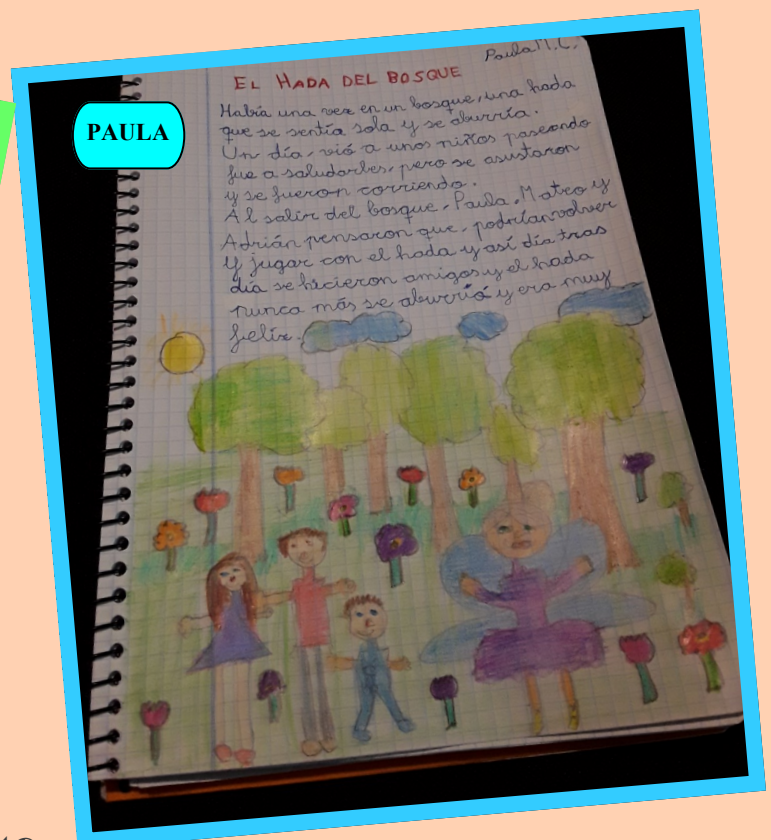 Paula M.C.
EL HADA DEL BOSQUE
PAULA
Había una vez en un bosque, una hada
que se sentía sola y se aburría.
Un día, vió a unos niños paseando
fue a saludarles, pero se asustaron
y se fueron corriendo.
Al salir del bosque, Paula, Mateo y
Adrián pensaron que, podrían volver
y jugar con el hada y así día tras
día se hicieron amigos y el hada
nunca más se aburrió y era muy
feliz.